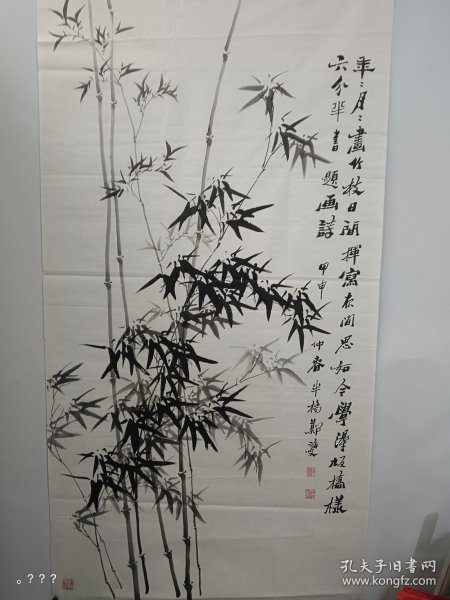 年〻月〻畫竹枝日間揮寫夜間思如今學得板橋樣
六分半書題画詩 甲申仲春半橋鄭燮
。???
孔夫子旧书网
www.kongfz.com